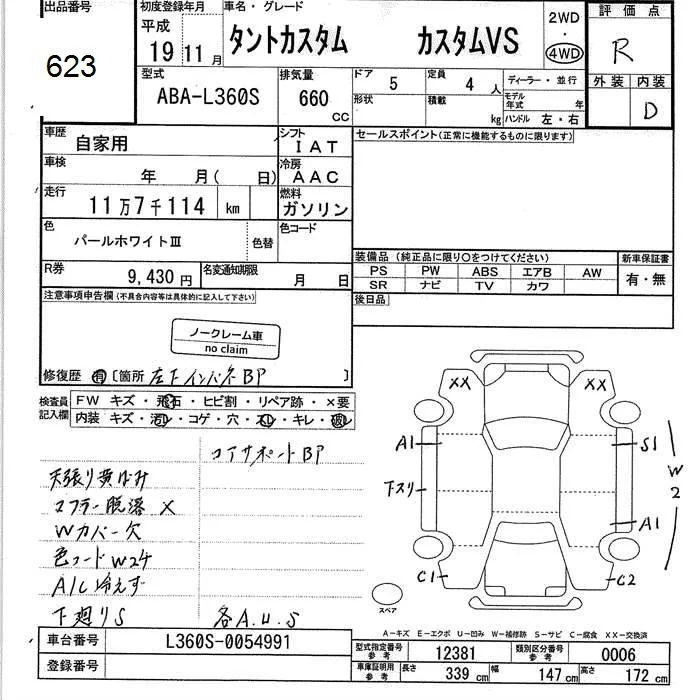 出品番号
623
初度登録年月
平成
19 11月
車名・グレード
タントカスタム カスタムVS
2WD
・
4WD
評価点
R
外装 内装
D
型式
ABA-L360S
排気量
660
CC
ドア
5
定員
4 人
形状
積載
kg
ディーラー・並行
モデル
年式 年
ハンドル 左・右
車歴
自家用
シフト
IAT
車検
年 月( 日)
冷房
AAC
走行
11万7千114 km
燃料
ガソリン
色
パールホワイトⅢ
色替
色コード
R券
9,430円
名変通知期限
月 日
セールスポイント(正常に機能するものに限ります)
装備品 (純正品に限り○をつけてください)
PS PW ABS エアB AW
SR ナビ TV カワ
新車保証書
有・無
後日品
注意事項申告欄(不具合内容等は具体的に記入して下さい)
ノークレーム車
no claim
修復歴 有 〔箇所 左下インパネBP 〕
検査員
記入欄
FW キズ・飛石・ヒビ割・リペア跡・×要
内装 キズ・汚レ・コゲ・穴・スレ・キレ・破レ
コアサポートBP
天張り黄ばみ
マフラー脱落 ×
Wカバー欠
色コードW24
A/C冷えず
下廻りS
各A.U.S
XX XX
A1 S1
下スリ
W2
A1
C1 C2
スペア
A-キズ E-エクボ U-凹み W-補修跡 S-サビ C-腐食 XX-交換済
車台番号
L360S-0054991
登録番号
型式指定番号
参考
12381
類別区分番号
参考
0006
車庫証明用
参考
長さ 339 cm 幅 147 cm 高さ 172 cm